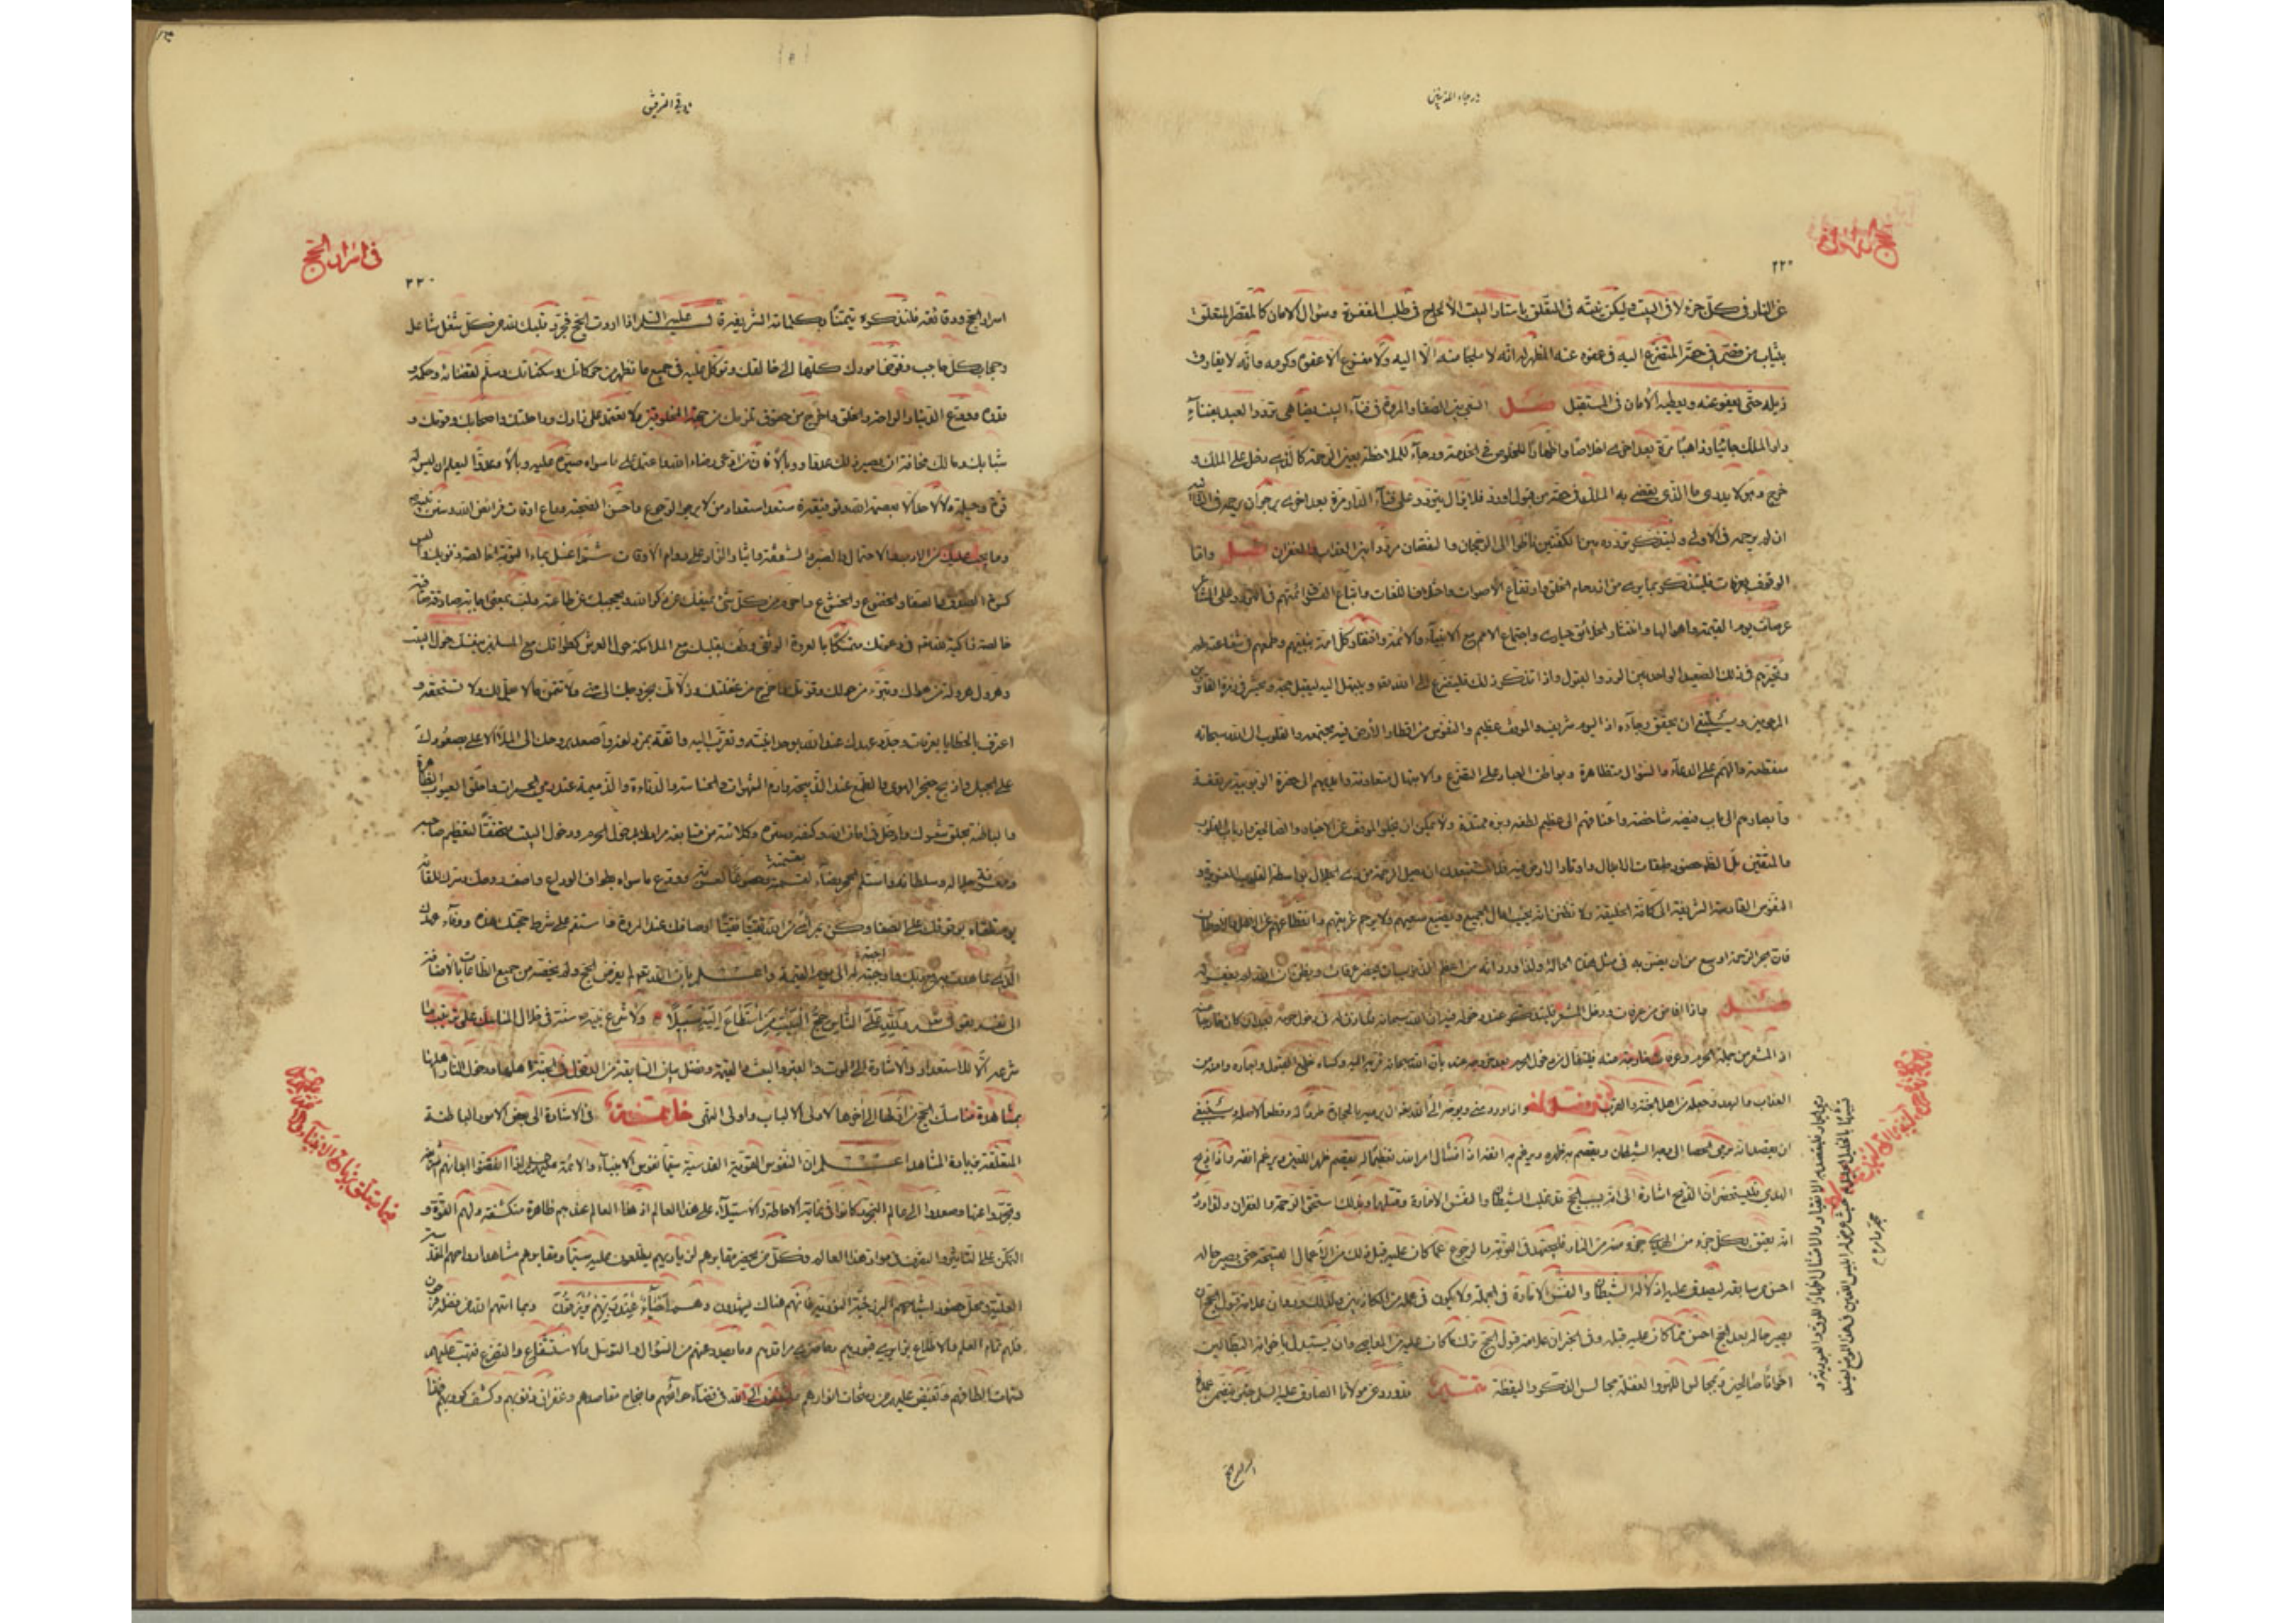 عن النار في كل جزء لاقى البيت وليكن نيته في التعلق باستار البيت الالحاح في طلب المغفرة وسؤال الامان كالمقصر المتعلق
بثياب من قصر في حقه المتضرع اليه في عفوه عنه المظهر له انه لا ملجأ منه الا اليه ولا مفزع الا عفوه وكرمه وانه لا يفارق
ذيله حتى يعفو عنه ويعطيه الأمان في المستقبل فصل السعي بين الصفا والمروة في فناء البيت يضاهي تردد العبد بفناء
دار الملك جائيا وذاهبا مرة بعد اخرى اخلاصا واظهارا للخلوص في الخدمة ورجاء للملاحظة بعين الرحمة كالذي دخل على الملك و
خرج وهو لا يدري ما الذي يقضي به الملك في حقه من قبول او رد فلا يزال يتردد على فناء الدار مرة بعد اخرى يرجو ان يرحمه في الثانية
ان لم يرحمه في الاولى وليتذكر تردده بين الكفتين ناظرا الى الرجحان والنقصان مرددا بين العذاب والغفران فصل واما
الوقوف بعرفات فليتذكر بما يرى من ازدحام الخلق وارتفاع الأصوات واختلاف اللغات واتباع الفرق ائمتهم في التردد على المشاعر
عرصات يوم القيمة واهوالها وانتشار الخلائق حيارى واجتماع الامم مع الانبياء والائمة واقتفاء كل امة نبيهم وطمعهم في شفاعته لهم
وتحيرهم في ذلك الصعيد الواحد بين الرد والقبول واذا تذكر ذلك فليتضرع الى الله تعالى ويبتهل اليه ليقبل حجه ويحشره في زمرة الفائزين
المرحومين وينبغي ان يحقق رجاءه اذ اليوم شريف والموقف عظيم والنفوس من اقطار الأرض فيه مجتمعة والقلوب الى الله سبحانه
منقطعة والهمم على الدعاء والسؤال متظاهرة وبواطن العباد على التضرع والابتهال متعاونة وايديهم الى حضرة الربوبية مرتفعة
وابصارهم الى باب فيضه شاخصة واعناقهم الى عظيم لطفه وبره ممتدة ولا يمكن ان يخلو الموقف عن الاخيار والصالحين وارباب القلوب
والمتقين بل الظاهر حضور طبقات الابدال واوتاد الارض فيه فلا تستبعدن ان تصل الرحمة من ذي الجلال بواسطة القلوب العزيزة و
النفوس القادسة الشريفة الى كافة الخليقة ولا تظنن انه يخيب امال الجميع ويضيع سعيهم ولا يرحم غربتهم وانقطاعهم عن الاهل والاوطان
فان بحر الرحمة اوسع من ان يضن به في مثل هذه الحالة ولذا ورد انه من اعظم الذنوب ان يحضر عرفات ويظن ان الله لم يغفر له
فصل واذا افاض من عرفات ودخل المشعر فليتذكر عند دخوله فيه ان الله سبحانه قد اذن له في دخول حرمه بعد ان كان خارجا عنه
اذ المشعر من جملة الحرم وعرفات خارجة عنه فليتفأل من دخول الحرم بعد خروجه عنه بان الله سبحانه قربه اليه وكساه خلع القبول واجاره وامنه من
العذاب والبعد وجعله من اهل الجنة والقرب واذا ورد منى وتوجه الى
ان يقصد انه يرمي الحصا الى وجه الشيطان ويقصم به ظهره ويرغم به انفه اذ امتثال امر الله تعظيما له يقصم ظهر اللعين ويرغم انفه واذا ذبح
الهدي فليستحضر ان الذبح اشارة الى انه بسبب الحج قد غلب الشيطان والنفس الامارة وقتلهما وبذلك استحق الرحمة والغفران ولذا ورد
انه يعتق بكل جزء من الهدي جزء منه من النار فليجتهد في التوبة والرجوع عما كان عليه قبل ذلك من الاعمال القبيحة حتى يصير حاله
احسن من سابقه ليصدق عليه اذلاله الشيطان والنفس الامارة في الجملة ولا يكون في عمله من الكاذبين ولذلك ورد ان علامة قبول الحج ان
يصير حاله بعد الحج احسن مما كان عليه قبله وفي الخبر ان علامة قبول الحج ترك ما كان عليه من المعاصي وان يستبدل باخوانه البطالين
اخوانا صالحين وبمجالس اللهو والغفلة مجالس الذكر واليقظة تتمة قد ورد عن مولانا الصادق عليه السلم خبر يتضمن عمدة
في اسرار الحج
٢٢٠
اسرار الحج ودقائقه فلنذكره تيمنا بكلماته الشريفة قال عليه السلم اذا اردت الحج فجرد قلبك لله من كل شغل شاغل
وحجاب كل حاجب وفوض امورك كلها الى خالقك وتوكل عليه في جميع ما تظهر من حركاتك وسكناتك وسلم لقضائه وحكمه و
قدره وودع الدنيا والراحة والخلق واخرج من حقوق تلزمك من جهة المخلوقين ولا تعتمد على زادك وراحلتك واصحابك وقوتك و
شبابك ومالك مخافة ان يصير ذلك عدوا ووبالا فان من ادعى رضاء الله واعتمد على ما سواه صيره عليه وبالا وعدوا ليعلم ان ليس له
قوة وحيلة ولا لاحد الا بعصمة الله وتوفيقه فاستعد استعداد من لا يرجو الرجوع واحسن الصحبة وراع اوقات فرائض الله وسنن نبيه
وما يجب عليك من الادب والاحتمال والصبر والشكر والشفقة والسخاء وايثار الزاد على دوام الأوقات ثم اغسل بماء التوبة الخالصة ذنوبك والبس
كسوة الصدق والصفا والخضوع والخشوع واحرم من كل شيء يمنعك عن ذكر الله ويحجبك عن طاعته ولب بمعنى اجابة صادقة صافية
خالصة زاكية لله تعالى في دعوتك متمسكا بالعروة الوثقى وطف بقلبك مع الملائكة حول العرش كطوافك مع المسلمين بنفسك حول البيت
وهرول هرولة من هواك وتبرء من حولك وقوتك واخرج من غفلتك وزلاتك بخروجك الى منى ولا تتمن ما لا يحل لك ولا تستحقه و
اعترف بالخطايا بعرفات وجدد عهدك عند الله بوحدانيته وتقرب اليه واتقه بمزدلفة واصعد بروحك الى الملأ الاعلى بصعودك
على الجبل واذبح حنجرة الهوى والطمع عند الذبيحة وارم الشهوات والخساسة والدناءة والذميمة عند رمي الجمرات واحلق العيوب الظاهرة
والباطنة بحلق شعرك وادخل في امان الله وكنفه وستره وكلائته من متابعة مرادك بدخول الحرم ودخول البيت متحققا لتعظيم صاحبه
ومعرفة جلاله وسلطانه واستلم الحجر رضاء بقسمته وخضوعا لعزته وودع ما سواه بطواف الوداع واصف روحك وسرك للقائه
يوم تلقاه بوقوفك على الصفا وكن بمرأى من الله نقيا اوصافك عند المروة واستقم على شرط حجتك هذه ووفاء عهدك
الذي عاهدت به مع ربك واوجبته له الى يوم القيمة واعلم بان الله تعالى لم يفرض الحج ولم يخصه من جميع الطاعات بالاضافة
الى نفسه بقوله تعالى ولله على الناس حج البيت من استطاع اليه سبيلا ولا شرع نبيه سنة في خلال المناسك على ترتيب ما
شرعه الا للاستعداد والاشارة الى الموت والقبر والبعث والقيمة وفضل بيان السابقة من الدخول في الجنة اهلها ودخول النار اهلها
بمشاهدة مناسك الحج من اولها الى اخرها لاولى الالباب واولى النهى خاتمة في الاشارة الى بعض الامور الباطنة
المتعلقة بزيارة المشاهد اعلم ان النفوس القوية القدسية سيما نفوس الانبياء والائمة عليهم السلم اذا نفضوا ابدانهم الشريفة
وتجردوا عنها وصعدوا الى عالم التجرد كانوا في غاية الاحاطة والاستيلاء على هذا العالم اذ هذا العالم عندهم ظاهرة منكشفة ولهم القوة و
التمكن على التأثير والتصرف في مواد هذا العالم وكل من يحضر مقابرهم لزيارتهم يطلعون عليه سيما ومقابرهم مشاهد ارواحهم المقدسة
العلية ومحال حضور اشباحهم البرزخية النورية فانهم هناك يشهدون وهم احياء عند ربهم يرزقون وبما اتيهم الله من فضله فرحون
فلهم تمام العلم والاطلاع بزائري قبورهم وحاضري مراقدهم وما يصدر عنهم من السؤال والتوسل والاستشفاع والتضرع فتهب عليهم
نسمات الطافهم وتفيض عليهم من رشحات انوارهم ويشفعون الى الله في قضاء حوائجهم وانجاح مقاصدهم وغفران ذنوبهم وكشف كروبهم فهذا